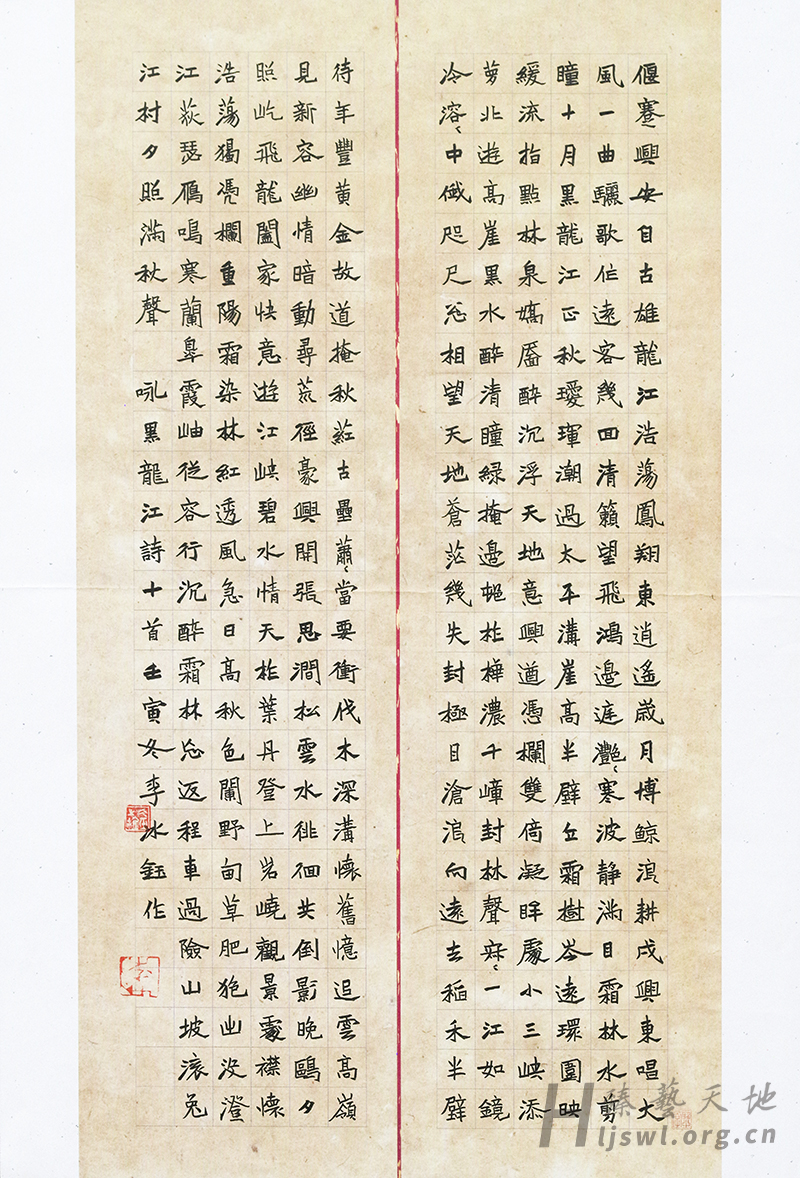 偃蹇興安自古雄龍江浩蕩鳳翔東逍遙歲月博鯨浪耕戍興東唱大
風一曲驪歌佐遠客幾回清籟望飛鴻邊庭灧〻寒波靜滿目霜林水剪
瞳十月黑龍江正秋璦琿潮過太平溝崖高半壁丘霜樹岑遠環園映
緩流指點林泉嫣靨醉沉浮天地意興遒憑欄雙倚凝眸處小三峽添
夢北遊高崖黑水醉清瞳綠掩邊柞樺濃千嶂封林聲寂〻一江如鏡
冷溶〻中俄咫尺忽相望天地蒼茫幾失封極目滄浪向遠去稻禾半壁
待年豐黃金故道掩秋葒古壘蕭〻當要衝伐木深溝懷舊憶追雲高嶺
見新容幽情暗動尋荒徑豪興開張思澗松雲水徘徊共倒影晚鷗夕
照屹飛龍闔家快意遊江峽碧水情天柞葉丹登上岩嶢觀景處襟懷
浩蕩獨憑欄重陽霜染林紅透風急日高秋色闌野甸草肥狍出沒澄
江荻瑟雁鳴寒蘭皋霞岫從容行沉醉霜林忘返程車過險山坡滾兔
江村夕照滿秋聲 詠黑龍江詩十首壬寅冬李冰鈺作
臻藝天地
Hljswl.org.cn